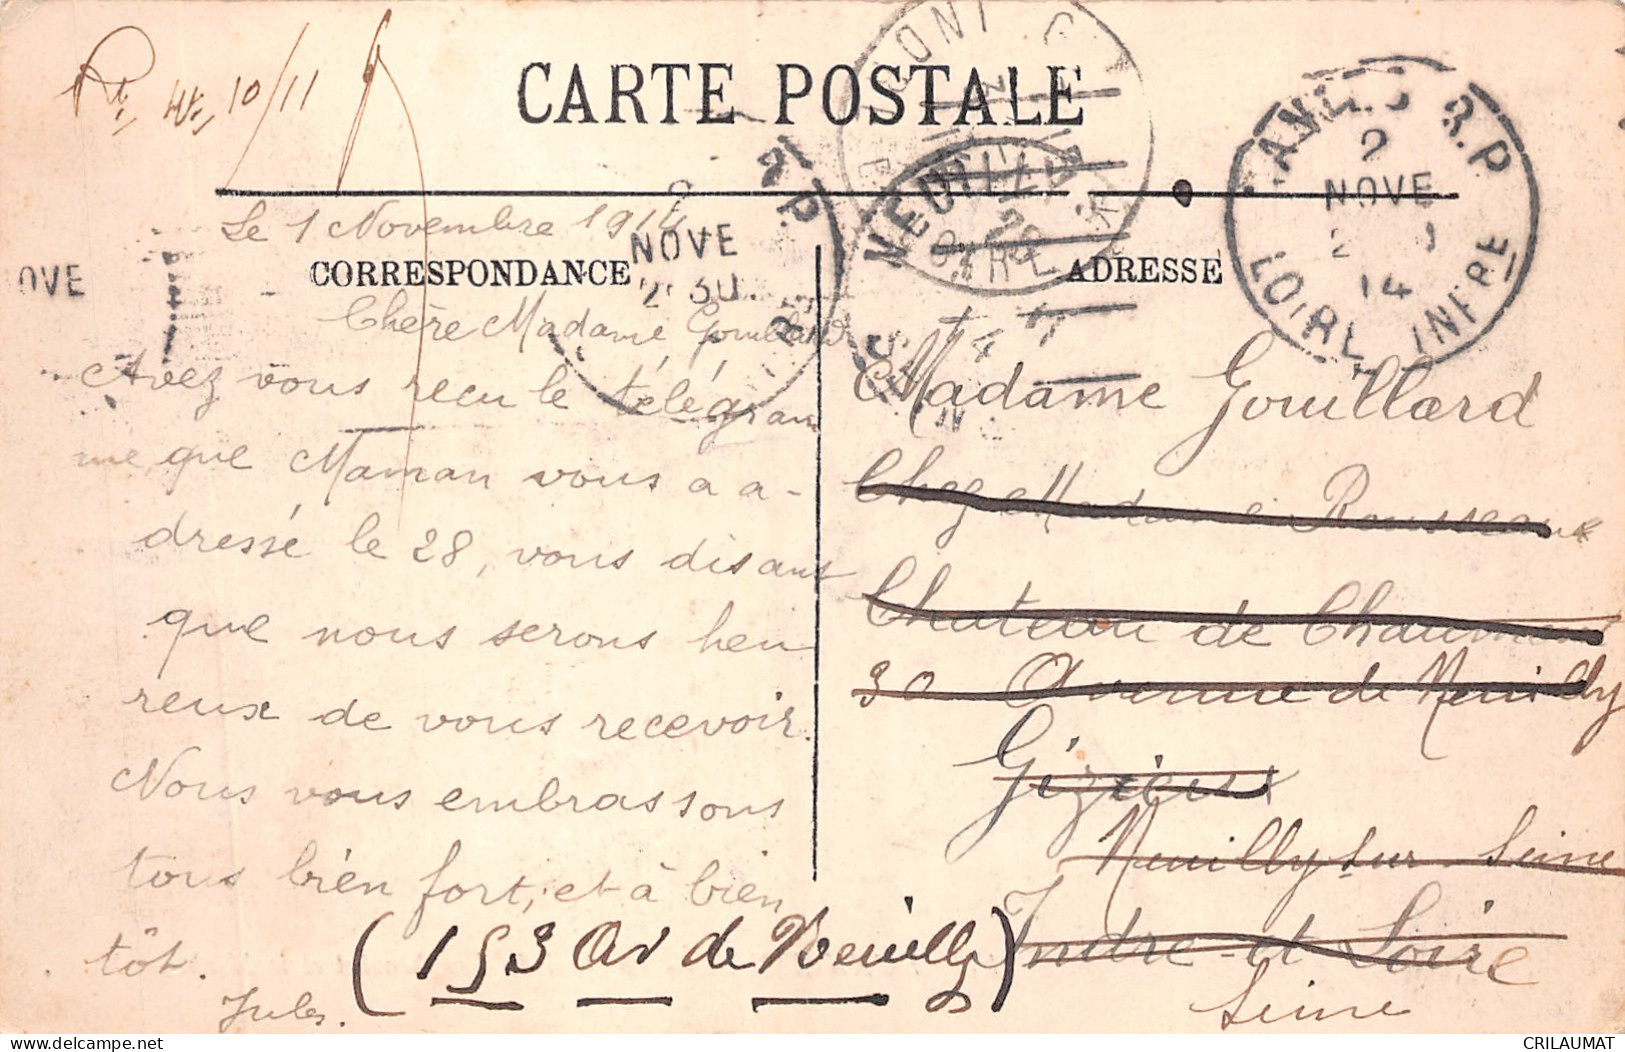 Rt, 10/11
CARTE POSTALE
Le 1 Novembre 1914
CORRESPONDANCE
ADRESSE
NOVE
2 30
OVE
NEUILLY
NANTES R.P.
2
NOVE
14
LOIRE INFRE
Chère Madame Gouillard
Avez vous reçu le télégram
me que Maman vous a a-
dressé le 28, vous disant
que nous serons heu
reux de vous recevoir.
Nous vous embrassons
tous bien fort, et à bien
tôt.
Jules.
Madame Gouillard
Chez Madame Rousseau
Chateau de Chaumont
30 Avenue de Neuilly
Gizieux
Neuilly sur Seine
Indre et Loire
Seine
(153 Av de Neuilly)
CRILAUMAT